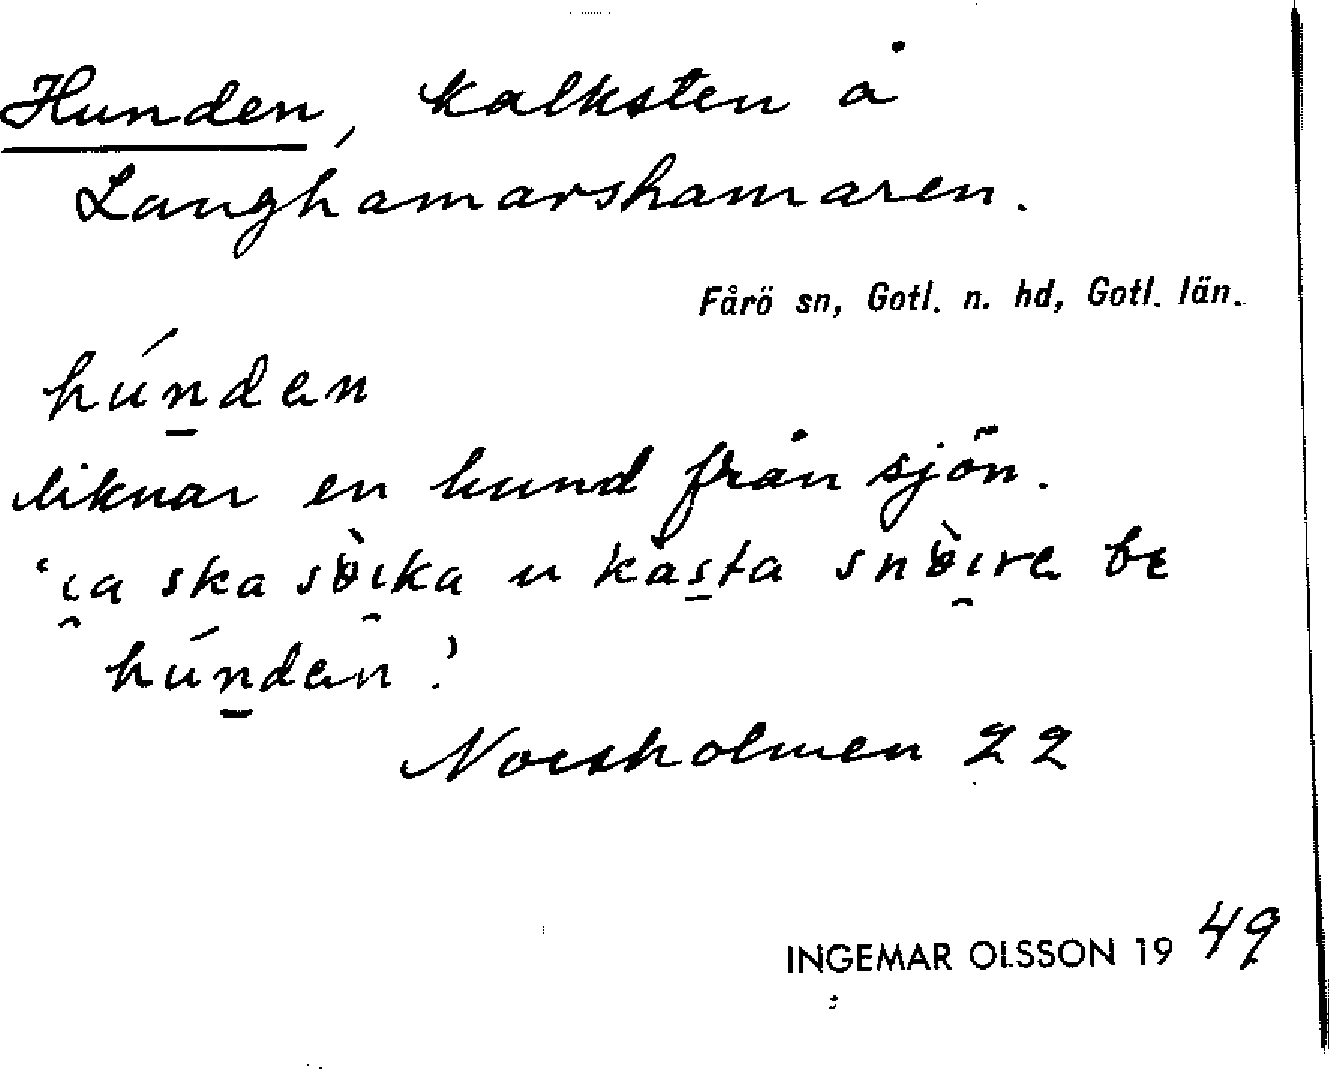 Hunden, kalksten å
Langhamarshamaren.
Fårö sn, Gotl. n. hd, Gotl. län.
hún̲dan
liknar en hund från sjön.
“i̯a ska sɵ̀i̯ka u kàs̲ta snɵ̀i̯re bε
hún̲dan!”
Norsholmen 22
INGEMAR OLSSON 1949